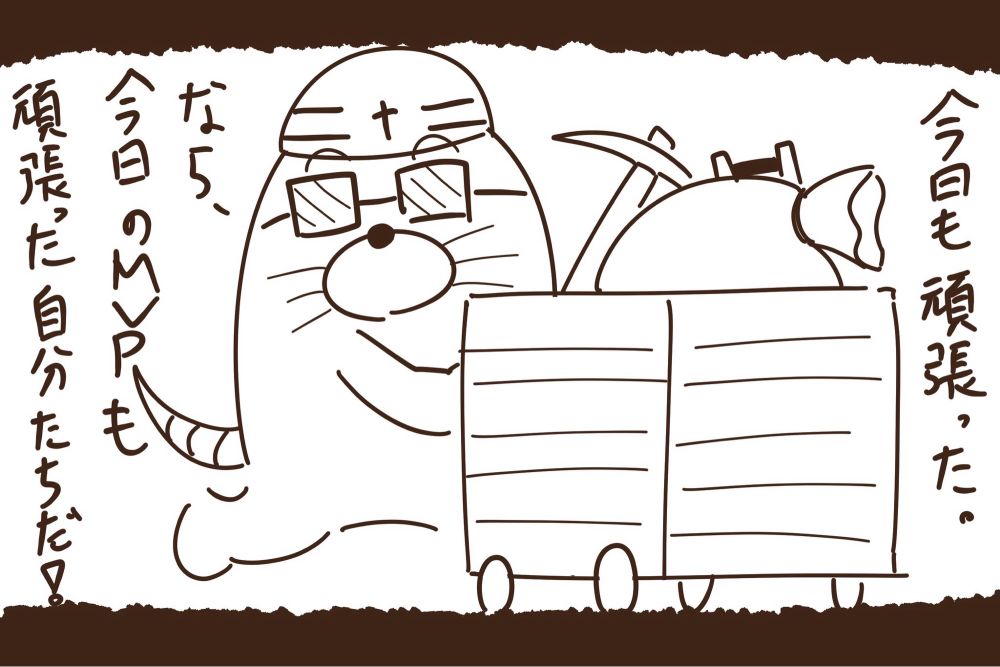 今日も頑張った。
なら、
今日のMVPも
頑張った自分たちだ!